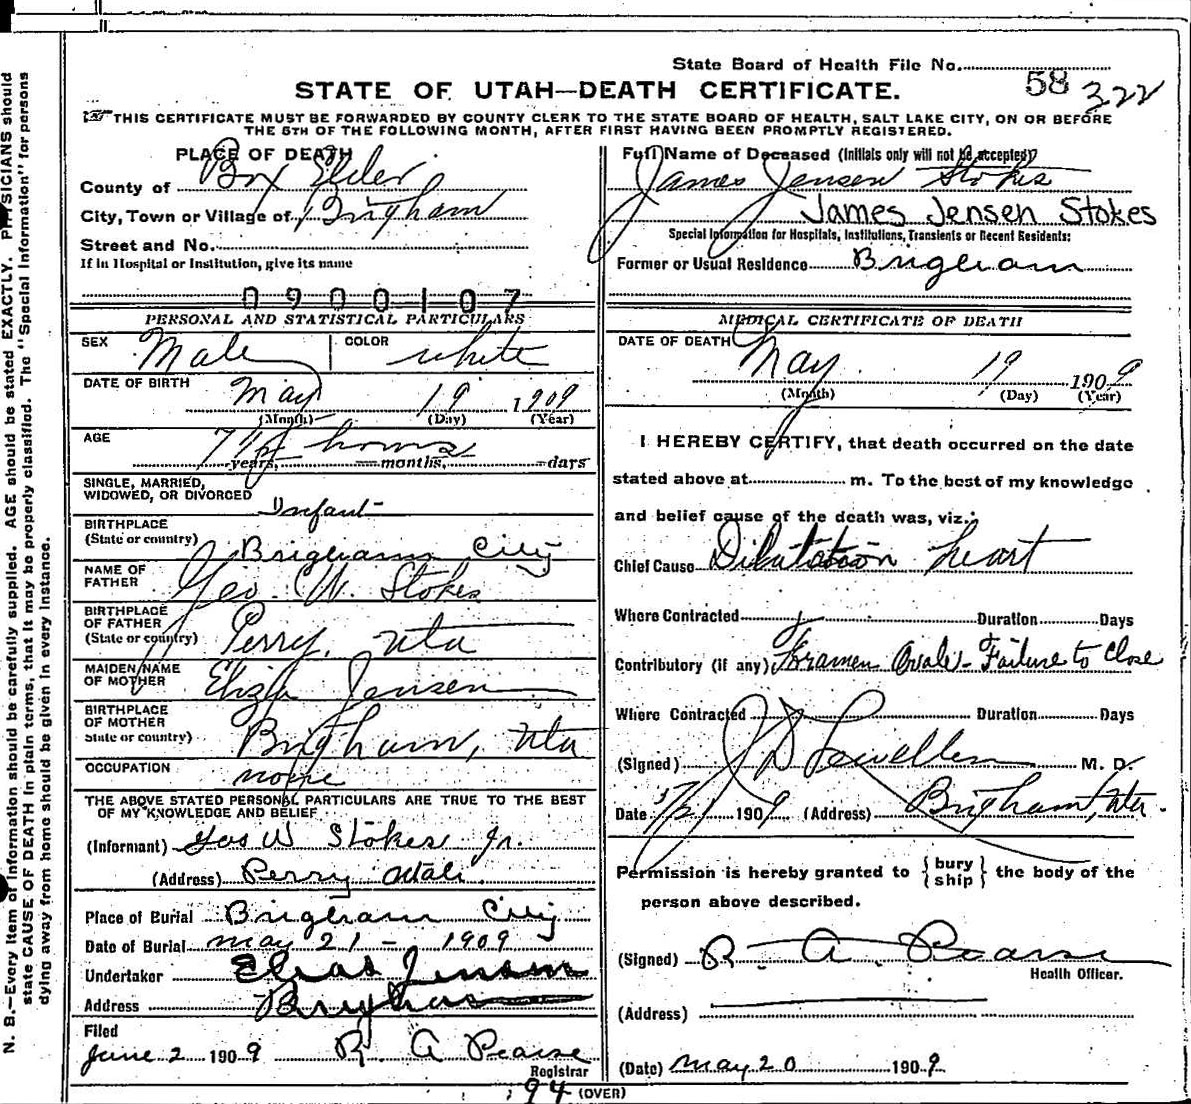 State Board of Health File No. 58 322
STATE OF UTAH—DEATH CERTIFICATE.
THIS CERTIFICATE MUST BE FORWARDED BY COUNTY CLERK TO THE STATE BOARD OF HEALTH, SALT LAKE CITY, ON OR BEFORE
THE 5TH OF THE FOLLOWING MONTH, AFTER FIRST HAVING BEEN PROMPTLY REGISTERED.
PLACE OF DEATH
County of Box Elder
City, Town or Village of Brigham
Street and No.
If in Hospital or Institution, give its name
0900107
PERSONAL AND STATISTICAL PARTICULARS
SEX Male COLOR white
DATE OF BIRTH
May 19 1909
(Month) (Day) (Year)
AGE 7 1/2 hours
years, months, days
SINGLE, MARRIED,
WIDOWED, OR DIVORCED Infant
BIRTHPLACE
(State or country) Brigham City
NAME OF
FATHER Geo. W. Stokes
BIRTHPLACE
OF FATHER
(State or country) Perry, Uta
MAIDEN NAME
OF MOTHER Eliza Jensen
BIRTHPLACE
OF MOTHER
State or country) Brigham, Uta
OCCUPATION none
THE ABOVE STATED PERSONAL PARTICULARS ARE TRUE TO THE BEST
OF MY KNOWLEDGE AND BELIEF
(Informant) Geo W Stokes Jr.
(Address) Perry Utah
Place of Burial Brigham City
Date of Burial May 21 - 1909
Undertaker Elias Jensen
Address Brigham
Filed
June 2 1909 R. A Pearse
Registrar
94 (OVER)
Full Name of Deceased (Initials only will not be accepted)
James Jensen Stokes
James Jensen Stokes
Special Information for Hospitals, Institutions, Transients or Recent Residents:
Former or Usual Residence Brigham
MEDICAL CERTIFICATE OF DEATH
DATE OF DEATH
May 19 1909
(Month) (Day) (Year)
I HEREBY CERTIFY, that death occurred on the date
stated above at m. To the best of my knowledge
and belief cause of the death was, viz.:
Chief Cause Dilatation heart
Where Contracted Duration Days
Contributory (if any) Foramen Ovale - Failure to close
Where Contracted Duration Days
(Signed) M. D.
Date 5/21 1909 (Address) Brigham, Uta.
Permission is hereby granted to { bury ship } the body of the
person above described.
(Signed) R. A. Pearse
Health Officer.
(Address)
(Date) May 20 1909.
N. B.—Every item of information should be carefully supplied. AGE should be stated EXACTLY. PHYSICIANS should
state CAUSE OF DEATH in plain terms, that it may be properly classified. The "Special Information" for persons
dying away from home should be given in every instance.